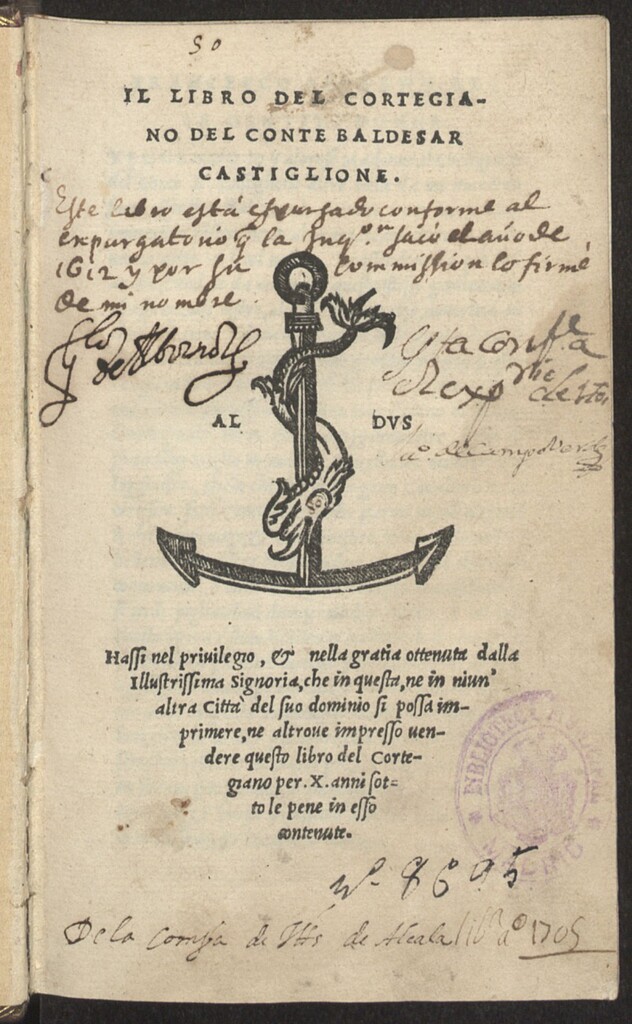 50
IL LIBRO DEL CORTEGIA-
NO DEL CONTE BALDESAR
CASTIGLIONE.
Este libro está espurgado conforme al
expurgatorio q̃ la Inq.ᵒⁿ sacó el año de
1612 y por su commission lo firmé
de mi nombre.
AL DVS
Hassi nel priuilegio, & nella gratia ottenuta dalla
Illustrissima Signoria, che in questa, ne in niun'
altra Città del suo dominio si possa im-
primere, ne altroue impresso uen-
dere questo libro del Corte-
giano per .X. anni sot-
to le pene in esso
contenute.
BIBLIOTECA
Nº 8695
De la Compª de Jhs de Alcala libª aº 1705